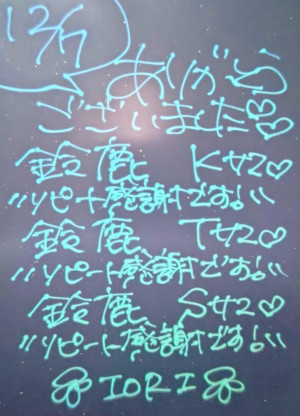 12/7
ありがとう
ございました♡♡
鈴鹿 Kサマ♡
〃リピート感謝です!〃
鈴鹿 Tサマ♡
〃リピート感謝です!〃
鈴鹿 Sサマ♡
〃リピート感謝です!〃
IORI